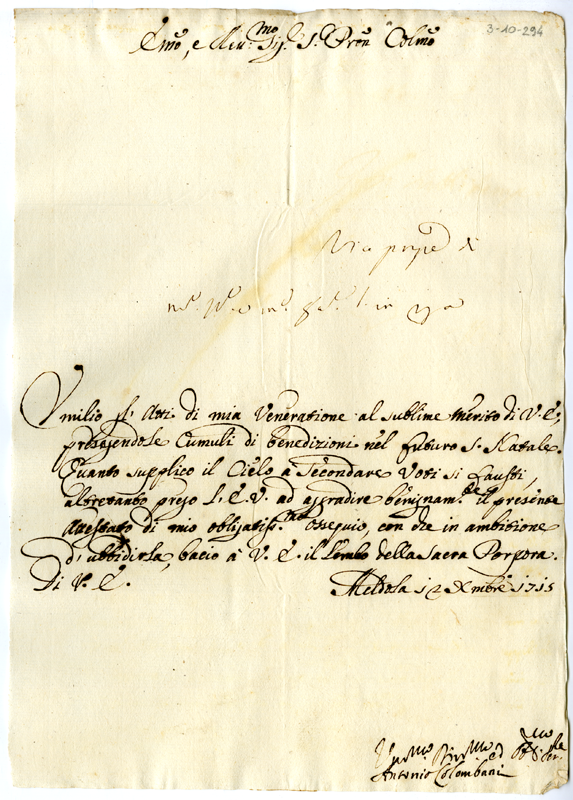 3-10-294
Emo, e Rev.mo Sig.r S.r Pron Colmo
Umilio gl' Atti di mia Veneratione al sublime merito di V. E.,
presagendole Cumuli di benedizioni nel futuro S. Natale.
Quanto supplico il Cielo a secondare Voti si fausti,
altretanto prego l' E. V. ad aggradire benignam.te il presente
attestato di mio obligatiss.mo ossequio, con che in ambitione
d' ubbidirla, bacio a V. E. il lembo della sacra Porpora.
Di V. E.
Meldola 12 Xmbre 1715
Um.mo Div.mo ed
Antonio Colombani